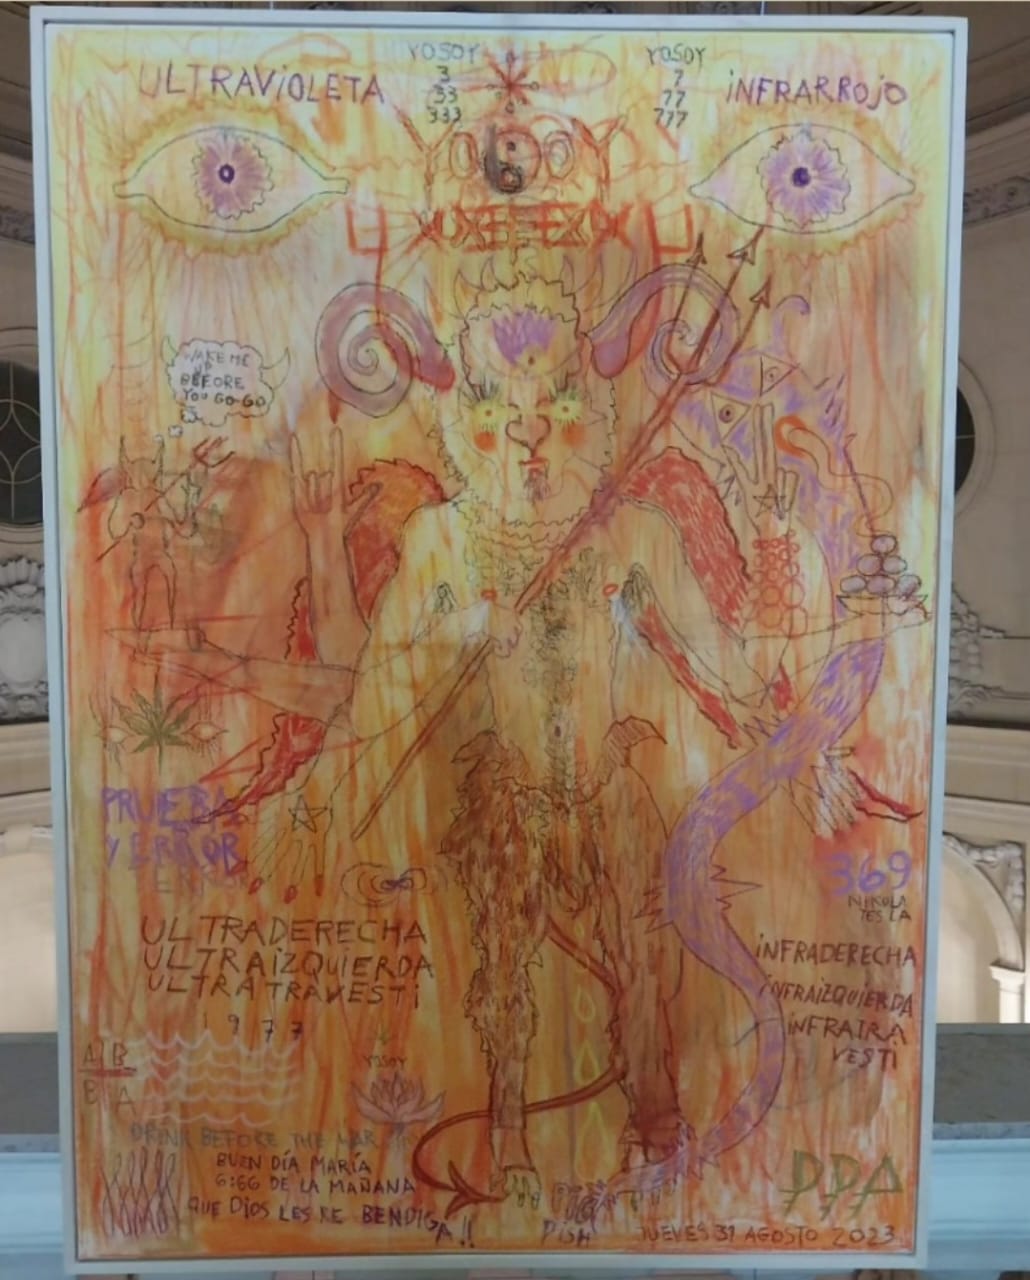 ULTRAVIOLETA
YOSOY
3
33
333
YOSOY
7
77
777
iNFRARROJO
WAKE ME
UP
BEFORE
YOU GO-GO
PRUEBA
Y ERROR
ERROR
369
NIKOLA
TESLA
ULTRADERECHA
ULTRAiZQUIERDA
ULTRATRAVESTi
1977
iNFRADERECHA
iNFRAiZQUiERDA
iNFRATRA
VESTi
A B
B A
YOSOY
DRINK BEFORE THE WAR
BUEN DÍA MARÍA
6:66 DE LA MAÑANA
QUE DIOS LES RE BENDIGA!!
PiSH
PPA
JUEVES 31 AGOSTO 2023